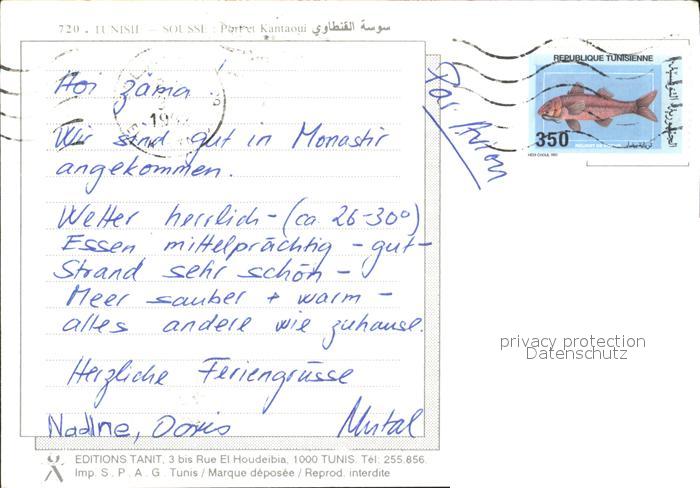 720 . TUNISIE — SOUSSE : Port et Kantaoui سوسة القنطاوي
Hoi zäma !
Wir sind gut in Monastir
angekommen.
Wetter herrlich - (ca. 26-30°)
Essen mittelprächtig - gut -
Strand sehr schön -
Meer sauber + warm -
alles andere wie zuhause.
Herzliche Feriengrüsse
Nadine, Doris
Par Avion
REPUBLIQUE TUNISIENNE
الجمهورية التونسية
350
privacy protection
Datenschutz
EDITIONS TANIT, 3 bis Rue El Houdeibia, 1000 TUNIS. Tél: 255.856.
Imp. S . P . A . G . Tunis / Marque déposée / Reprod. interdite